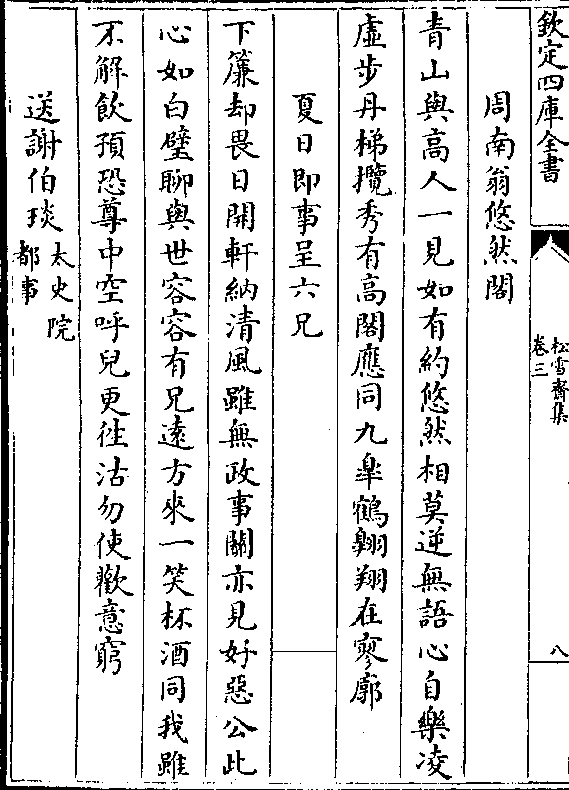 欽定四庫全書
松雪齋集
卷三
八
周南翁悠然閣
青山與高人一見如有約悠然相莫逆無語心自樂凌
虛步丹梯攬秀有高閣應同九臯鶴翱翔在寥廓
夏日即事呈六兄
下簾却畏日開軒納清風雖無政事關亦見好惡公此
心如白璧聊與世容容有兄遠方來一笑杯酒同我雖
不解飲預恐尊中空呼兒更徃沽勿使歡意窮
送謝伯琰太史院
都事